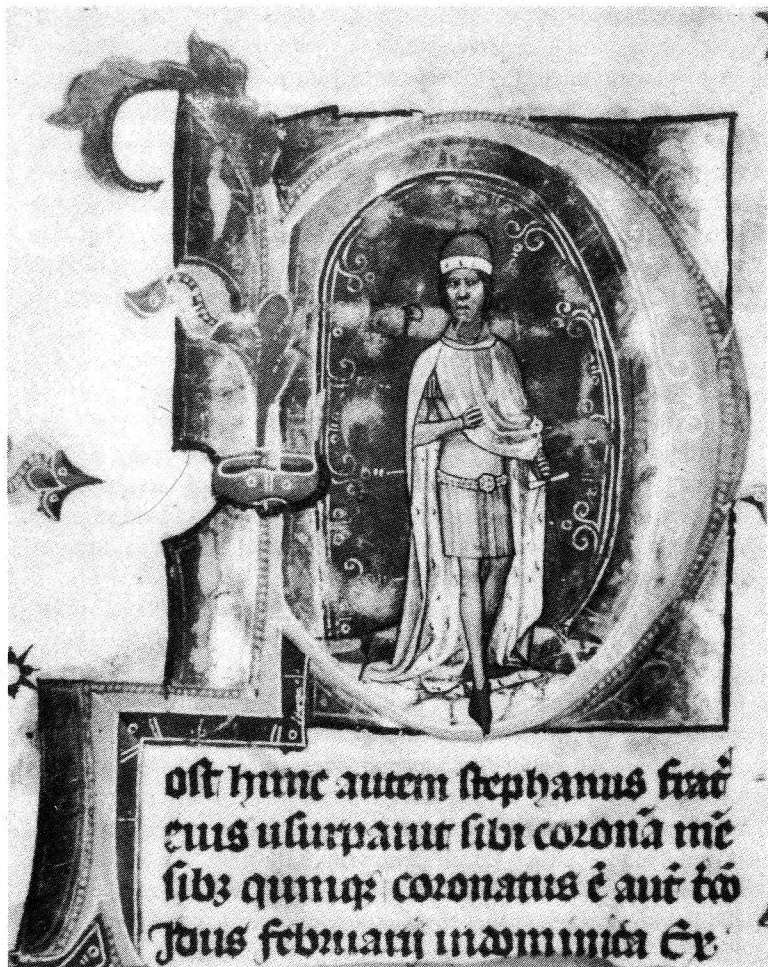 ost hunc autem stephanus frat̄
eius usurpauit sibi coronā mē
sibꝫ quinqꝫ coronatus ē aut̄ t̄cō
Idus februarii in dominica Ex